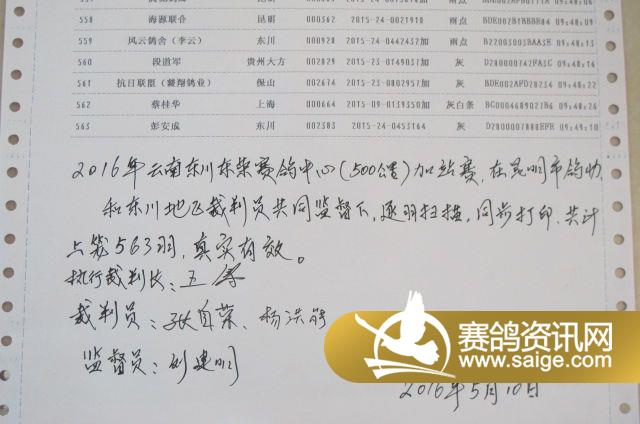 558 海源联合 昆明 000362 2015-24-0021918 雨点 09:48:09
559 风云鸽舍(李云) 东川 000928 2015-24-0442432加 雨点 B22003003BAA3E 09:48:13
560 段道军 贵州大方 002829 2015-23-0149037加 灰 D280000742FA3C 09:48:16
561 抗日联盟(赞翔鸽业) 保山 002674 2015-23-0802957加 灰 BDE002AFD28234 09:48:22
562 蔡桂华 上海 000664 2015-09-0139350加 灰白条 BC0004689021B6 09:48:26
563 彭安成 东川 002383 2015-24-0453164 灰 D2800007888EFE 09:49:10
2016年云南东川东荣赛鸽中心(500公里)加站赛,在昆明市鸽协
和东川地区裁判员共同监督下,逐羽扫描,同步打印、共计
上笼563羽,真实有效。
执行裁判长:
裁判员:张自荣、杨洪
监督员:刘建明
2016年5月10日
赛鸽资讯网
www.saige.com